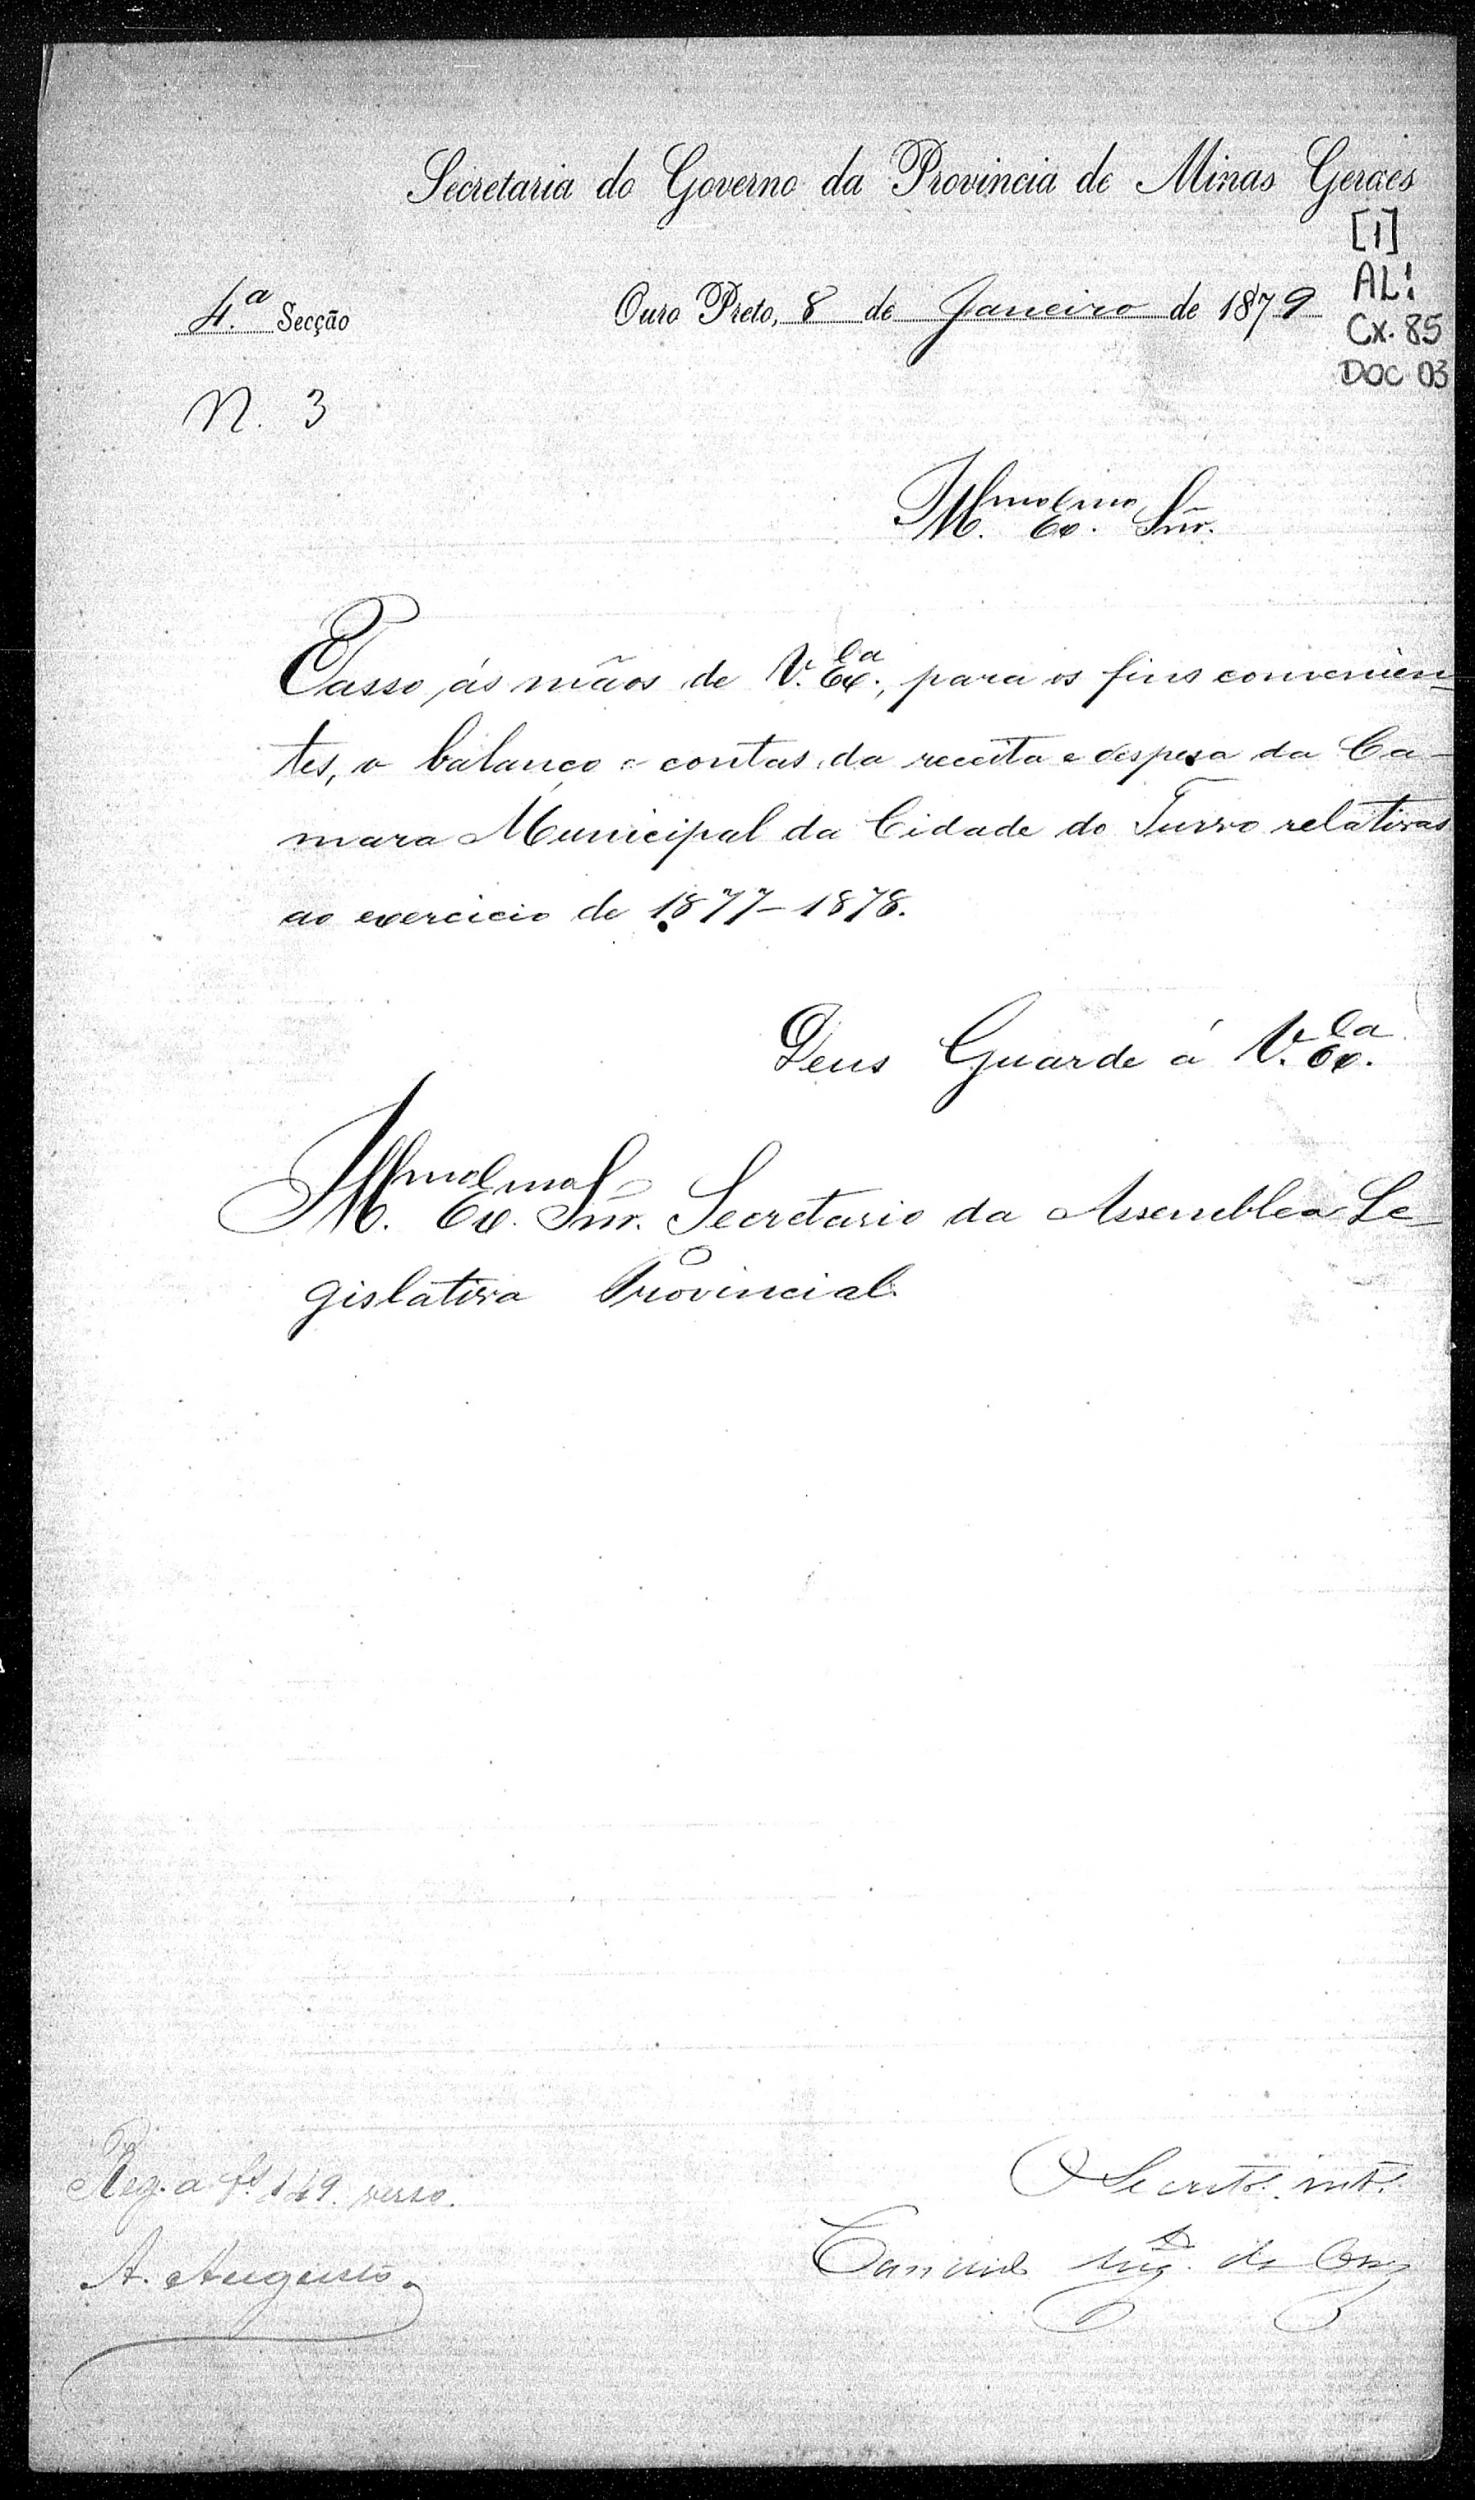 Secretaria do Governo da Provincia de Minas Geraes
[1]
AL!
Cx. 85
DOC 03
4.ª Secção
Ouro Preto, 8 de Janeiro de 1879
N. 3
Ill.mo Ex.mo Snr.
Passo ás mãos de V. Ex.cia, para os fins convenien-
tes, o balanço e contas da receita e despesa da Ca-
mara Municipal da Cidade do Turvo relativas
ao exercicio de 1877-1878.
Deus Guarde á V. Ex.cia
Ill.mo Ex.mo Snr. Secretario da Assemblea Le-
gislativa Provincial.
Reg. a fs 149 verso.
A. Augusto
O Secret.º int.º
Aug.to da Cruz